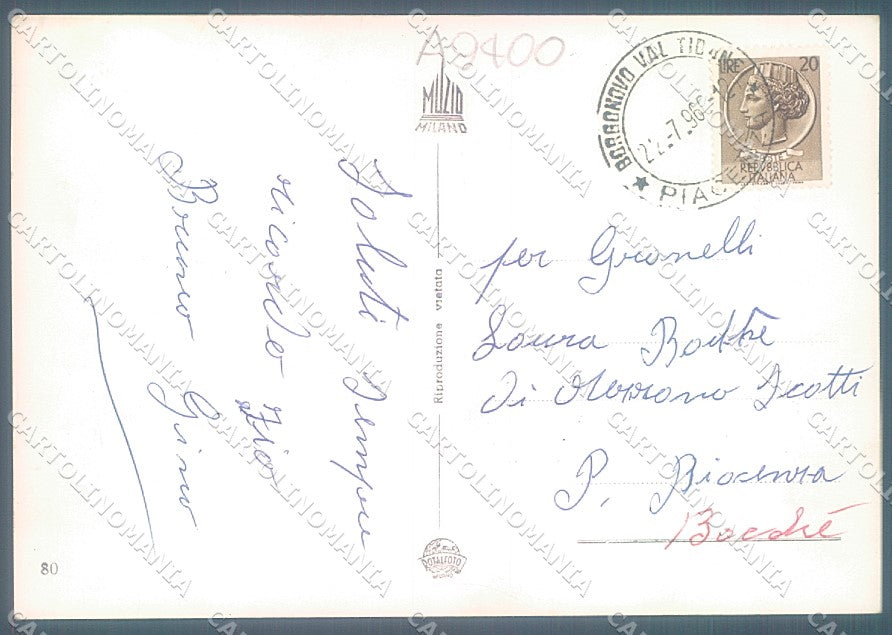 A9400
MUZIO
MILANO
BORGONOVO VAL TIDONE
22-7.966-12
★ PIACENZA
LIRE 20
POSTE
REPUBBLICA
ITALIANA
Saluti Sempre
ricordo zio
Bruno Gino
Riproduzione vietata
per Granelli
Laura
di Mezzano Scotti
P. Piacenza
TOTALFOTO
80
CARTOLINOMANIA